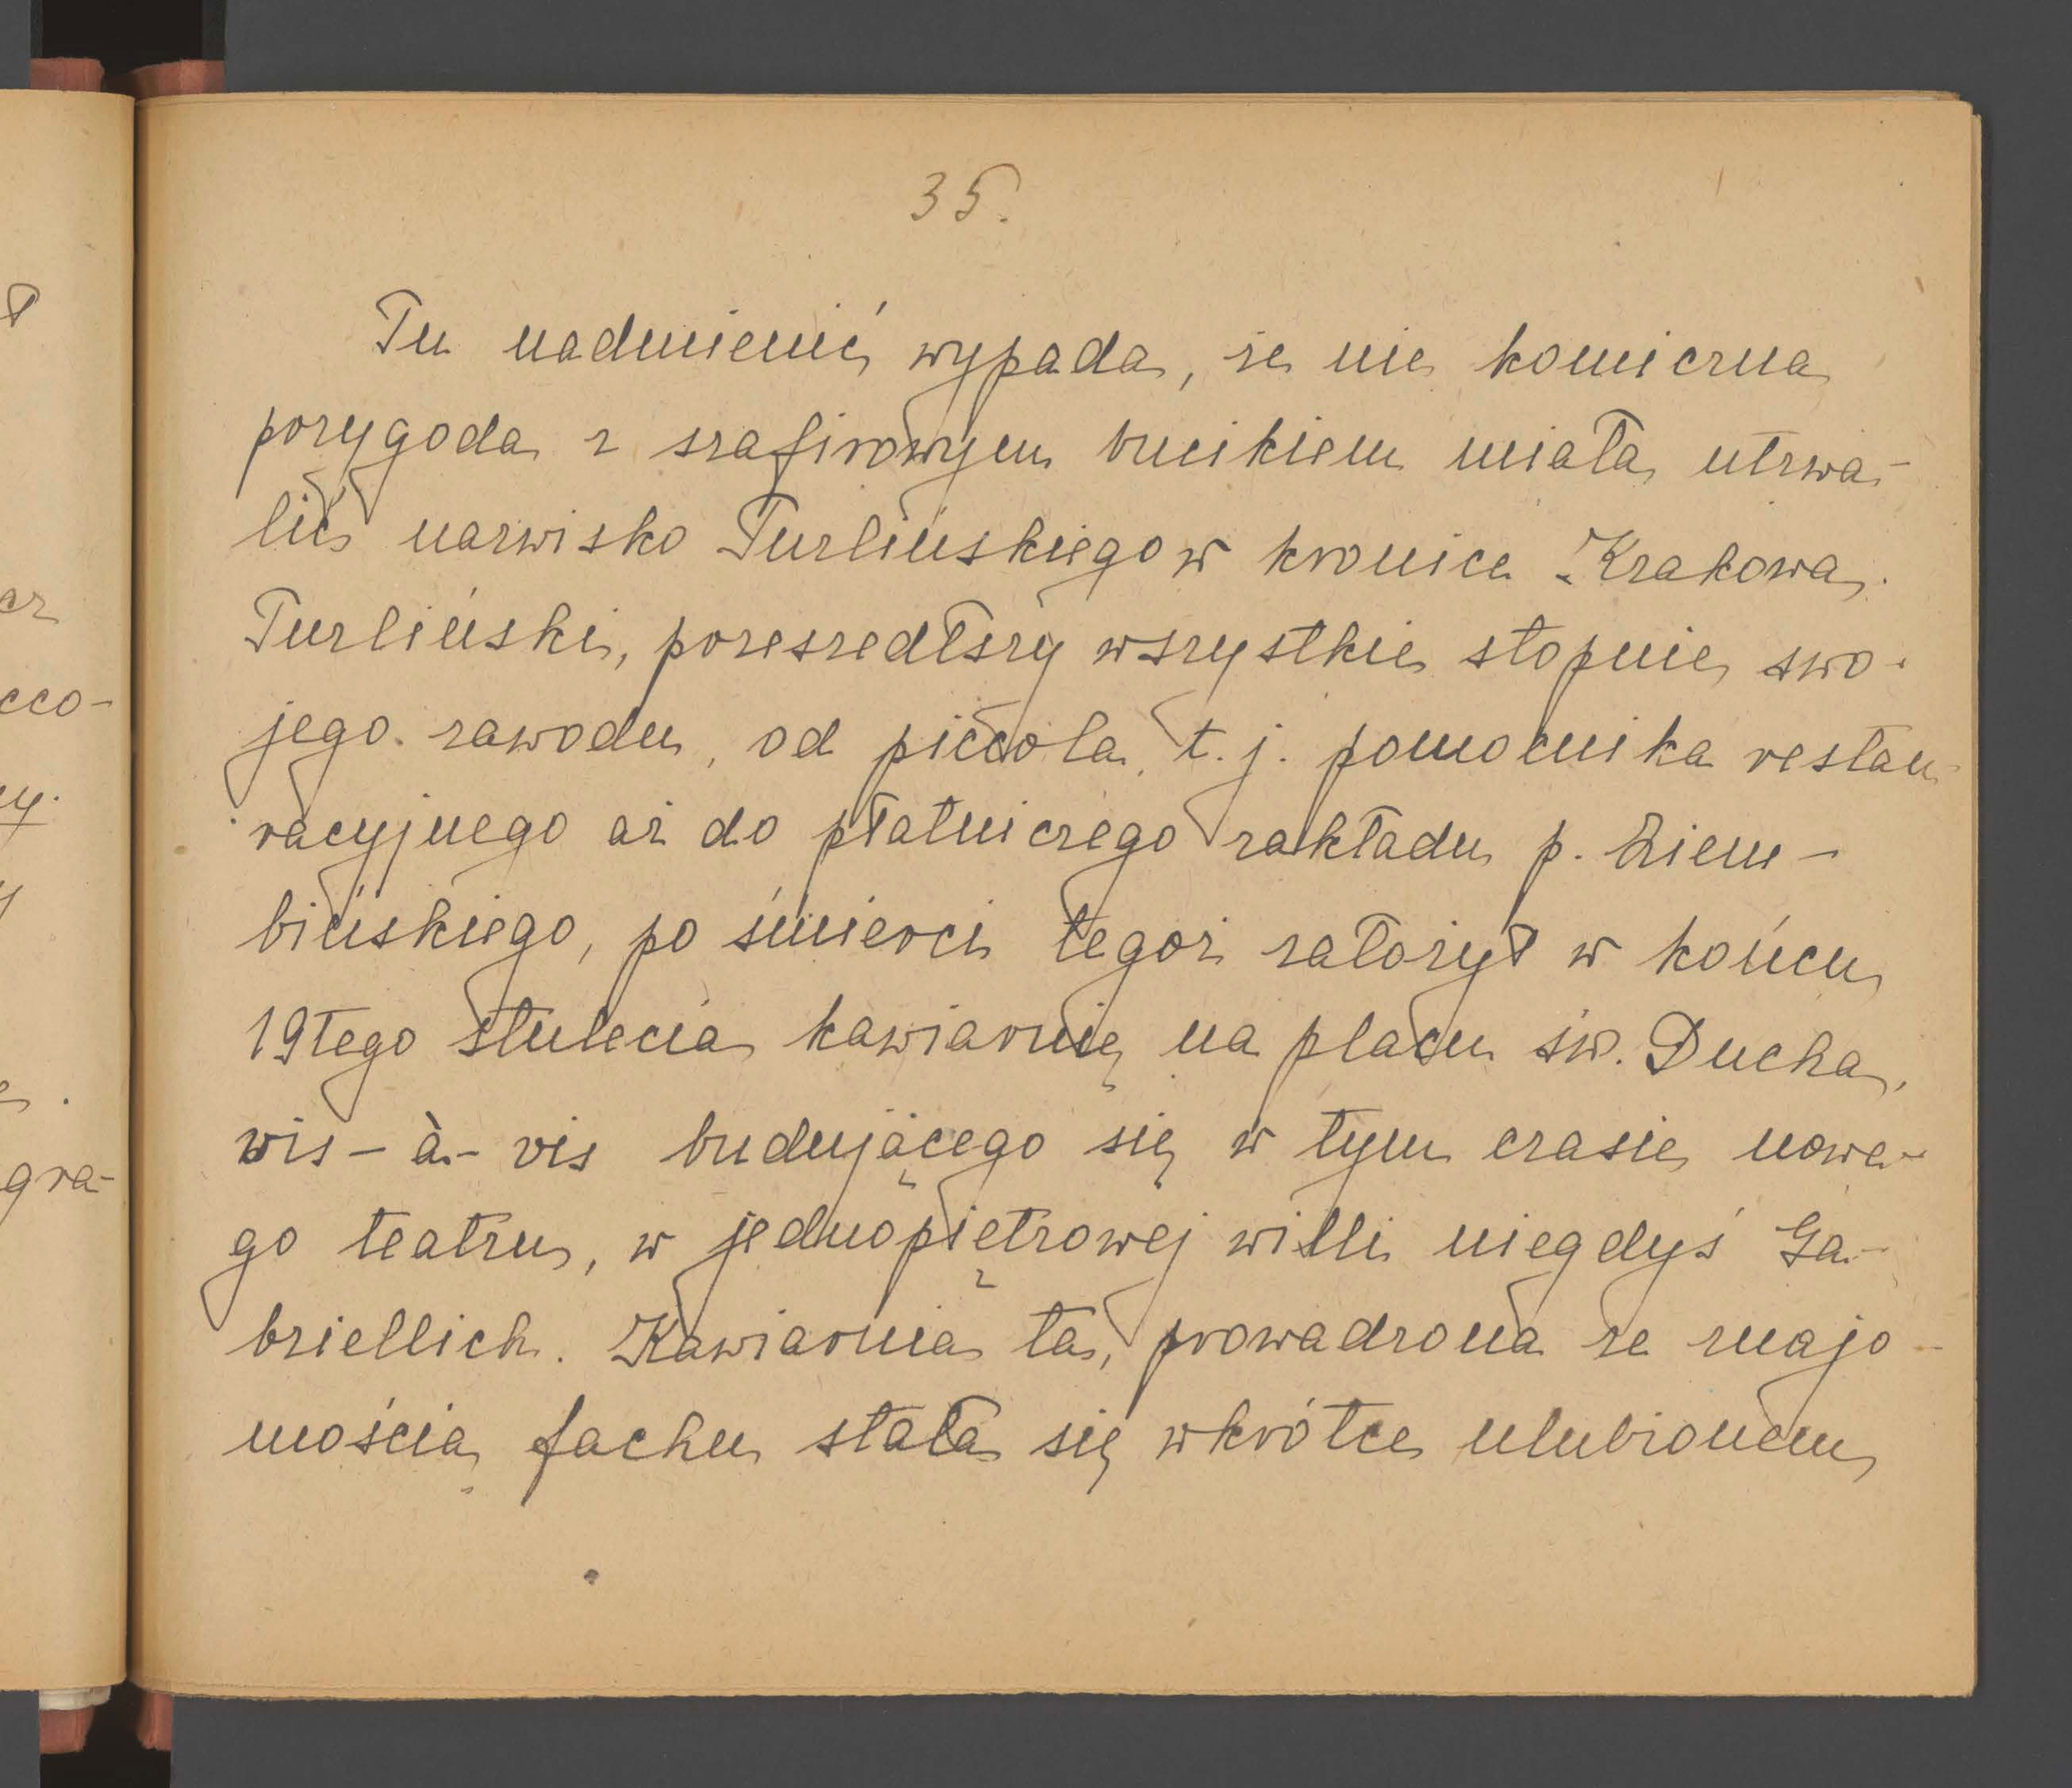 35.
Tu nadmienić wypada, że nie komiczna
przygoda z szafirowym bucikiem miała utrwa-
lić nazwisko Turlińskiego w kronice Krakowa.
Turliński, przeszedłszy wszystkie stopnie swo-
jego zawodu, od piccola, t. j. pomocnika restau-
racyjnego aż do płatniczego zakładu p. Ziem-
bińskiego, po śmierci tegoż założył w końcu
19tego stulecia kawiarnię na placu św. Ducha,
wis-à-vis budującego się w tym czasie nowe-
go teatru, w jednopiętrowej willi niegdyś Ga-
briellich. Kawiarnia ta, prowadzona ze znajo-
mością fachu stała się wkrótce ulubionem
ł
cz
cco-
y.
y
gra-